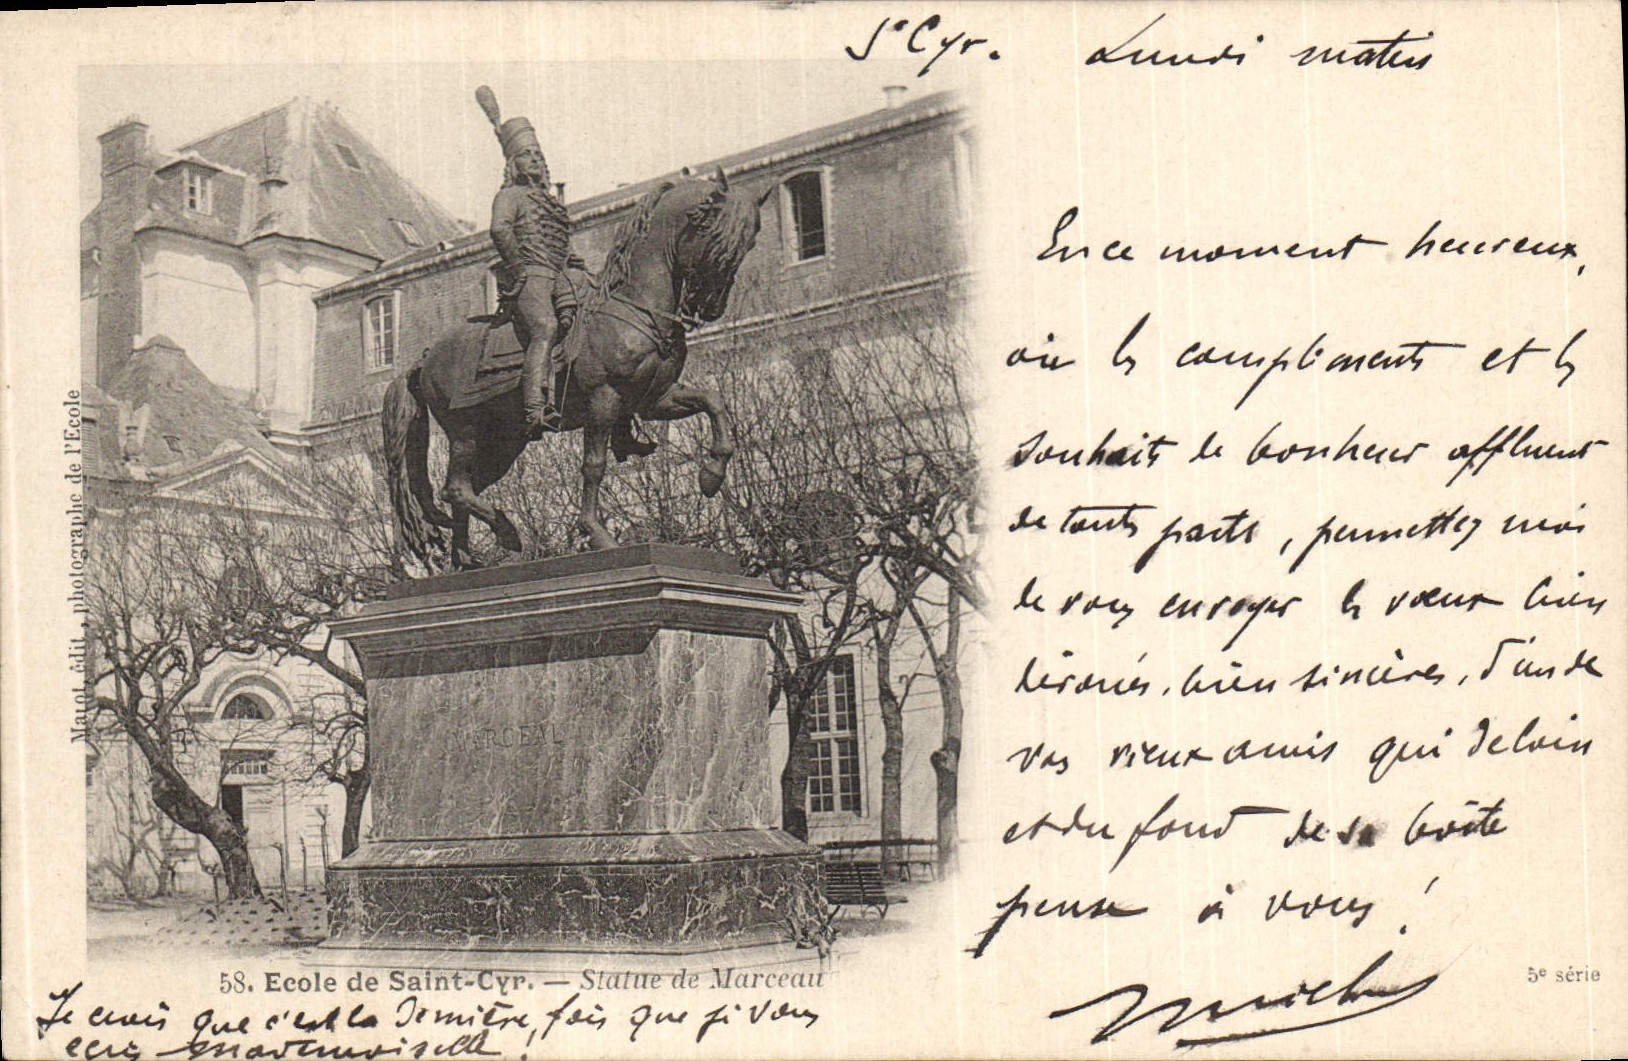 St Cyr. Lundi matin
En ce moment heureux,
où les compliments et les
souhaits de bonheur affluent
de toutes parts, permettez moi
de vous envoyer les vœux bien
dévoués, bien sincères, d'un de
vos vieux amis qui de loin
et du fond de sa boîte
pense à vous !
MARCEAU
Marot, édit., photographe de l'Ecole
58. Ecole de Saint-Cyr. — Statue de Marceau
5e série
Je crois que c'est la dernière fois que je vous
écris Mademoiselle !